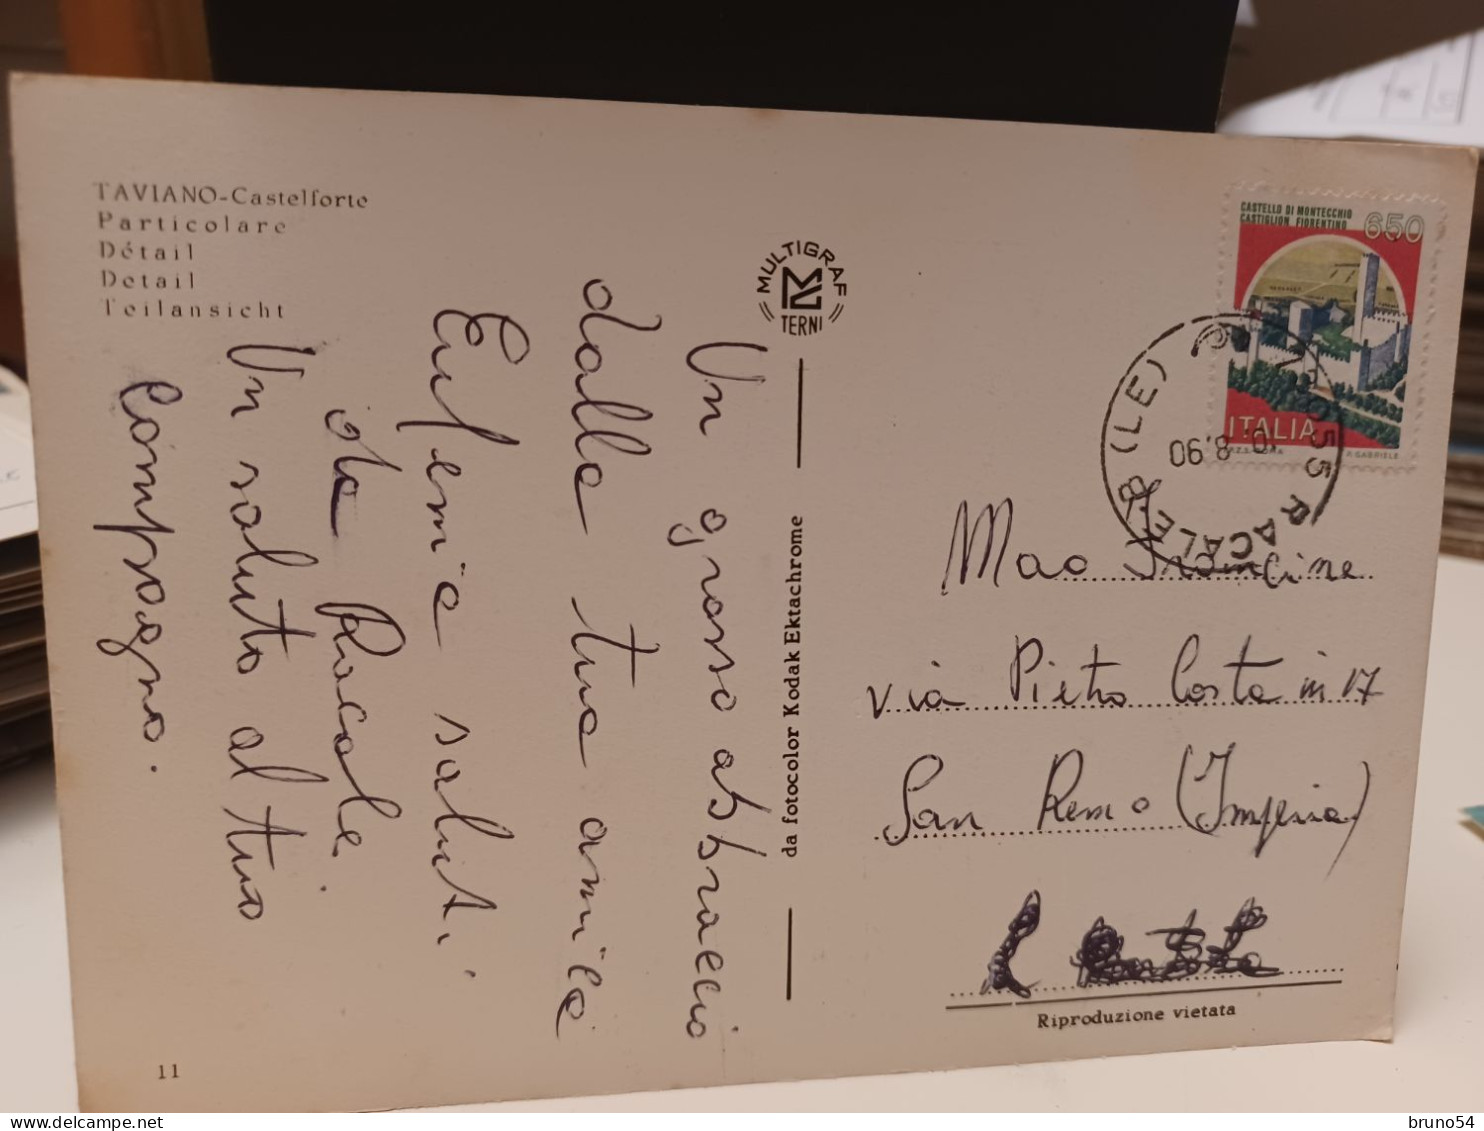 TAVIANO-Castelforte
Particolare
Détail
Detail
Teilansicht
MULTIGRAF
TERNI
da fotocolor Kodak Ektachrome
Un grosso abbraccio
dalla tua amica
Eufemia saluti
da Racale.
Un saluto al tuo
compagno.
CASTELLO DI MONTECCHIO
CASTIGLION FIORENTINO
650
ITALIA
R. GABRIELE
73055 RACALE B (LE)
8.90
Mao
via Pietro Costa in 17
San Remo (Imperia)
Riproduzione vietata
11
bruno54